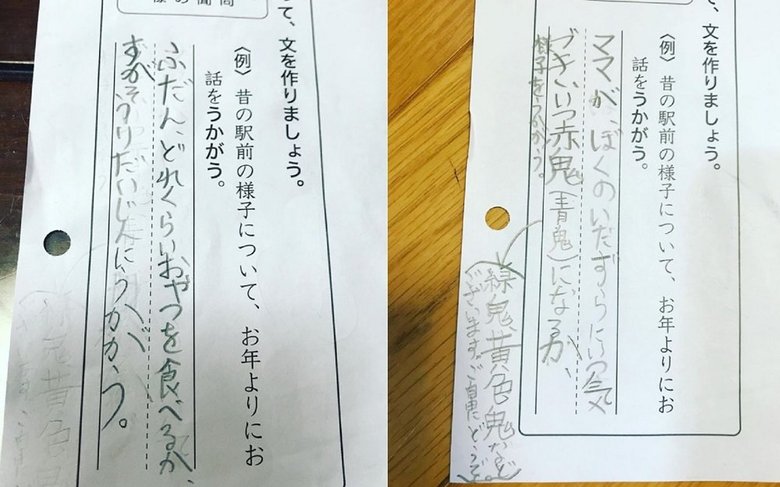 って、文を作りましょう。
〈例〉 昔の駅前の様子について、お年よりにお
話をうかがう。
ふだん、どれくらいおやつを食べるか、
すがそうりだいじんにうかがう。
、文を作りましょう。
〈例〉 昔の駅前の様子について、お年よりにお
話をうかがう。
ママが、ぼくのいたずらにいつ気
づきいつ赤鬼(青鬼)になるか、
様子をうかがう。
緑鬼黄色鬼など
ございます。ご自由にどうぞ。